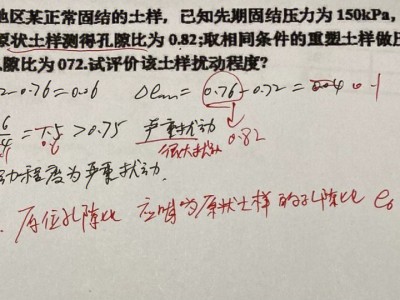 地区某正常固结的土样，已知先期固结压力为150kPa，
原状土样测得孔隙比为0.82;取相同条件的重塑土样做压
隙比为072.试评价该土样扰动程度?
2-0.76=0.06 Δem=0.76-0.72=0.04 0.1
=1.5>0.75 严重扰动 0.82
0.6 很大扰动
动程度为严重扰动.
原位孔隙比 应当为原状土样的孔隙比 e0